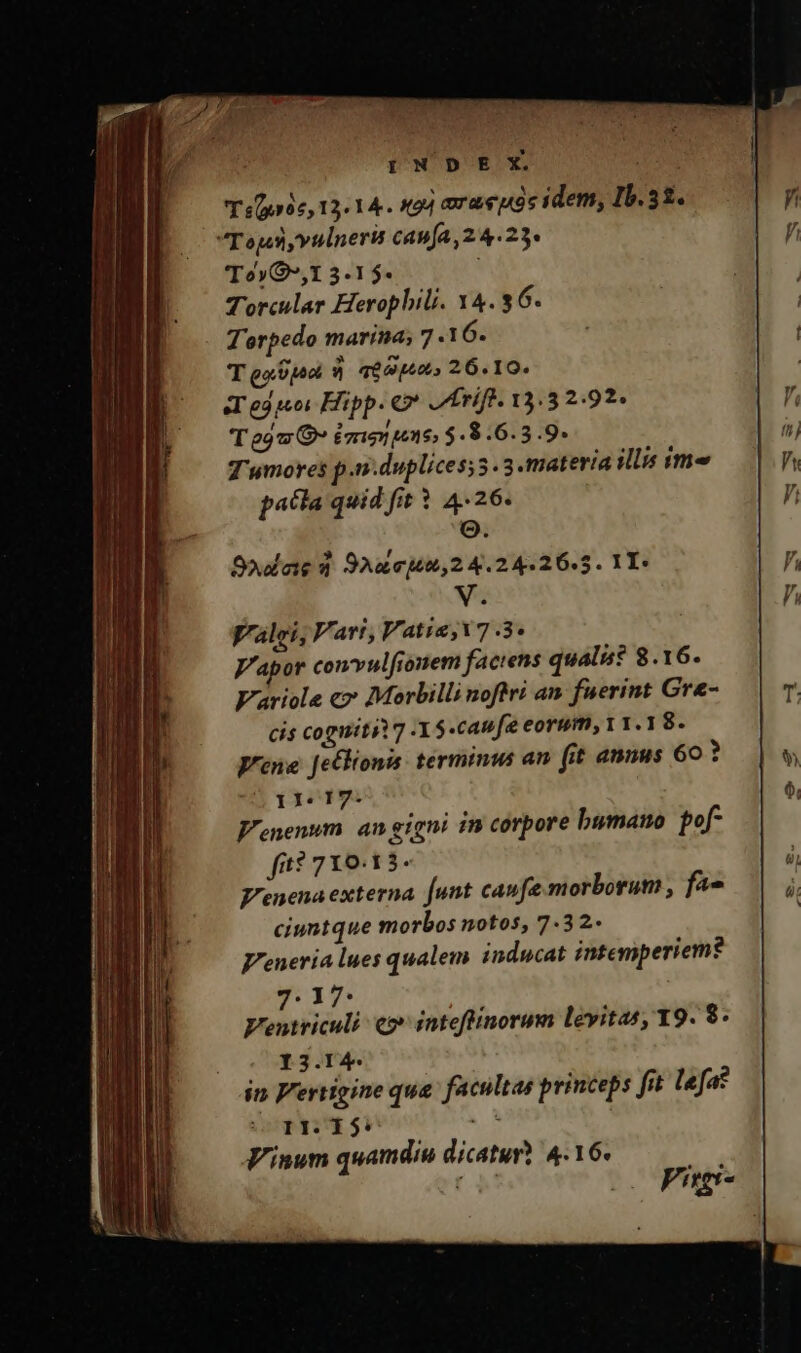 INDEX.
Τεϊανὸς, 13.14. καὶ σπασμὸς idem, Ib. 32.
Τομὴ, vulneris cauſa, 24.23.
Τόν⊕, 13.15.
Torcular Herophili. 14.36.
Torpedo marina, 7.16.
Τραῦμα ἢ τρῶμα, 26.10.
Τρόμοι Hipp. & Ariſt. 13.32.92.
Τρόπ⊕ ἐπιστήμης, 5.8.6.3.9.
Tumores p.n. duplices; 3.3. materia illis im-
pacta quid ſit? 4.26.
Θ.
Θλάσις ἢ θλάσμα, 24.24.26.5.11.
V.
Valgi, Vari, Vatiæ, 17.3.
Vapor convulſionem faciens qualis? 8.16.
Variolæ & Morbilli noſtri an fuerint Græ-
cis cogniti? 7.15. cauſæ eorum, 11.18.
Venæ ſectionis terminus an ſit annus 60?
11.17.
Venenum an gigni in corpore humano poſ-
ſit? 710.13.
Venena externa ſunt cauſæ morborum, fa-
ciuntque morbos notos, 7.32.
Veneria lues qualem inducat intemperiem?
7.17.
Ventriculi & inteſtinorum levitas, 19.8.
13.14.
in Vertigine quæ facultas princeps ſit læſa?
11.15.
Vinum quamdiu dicatur? 4.16.
Virgi-